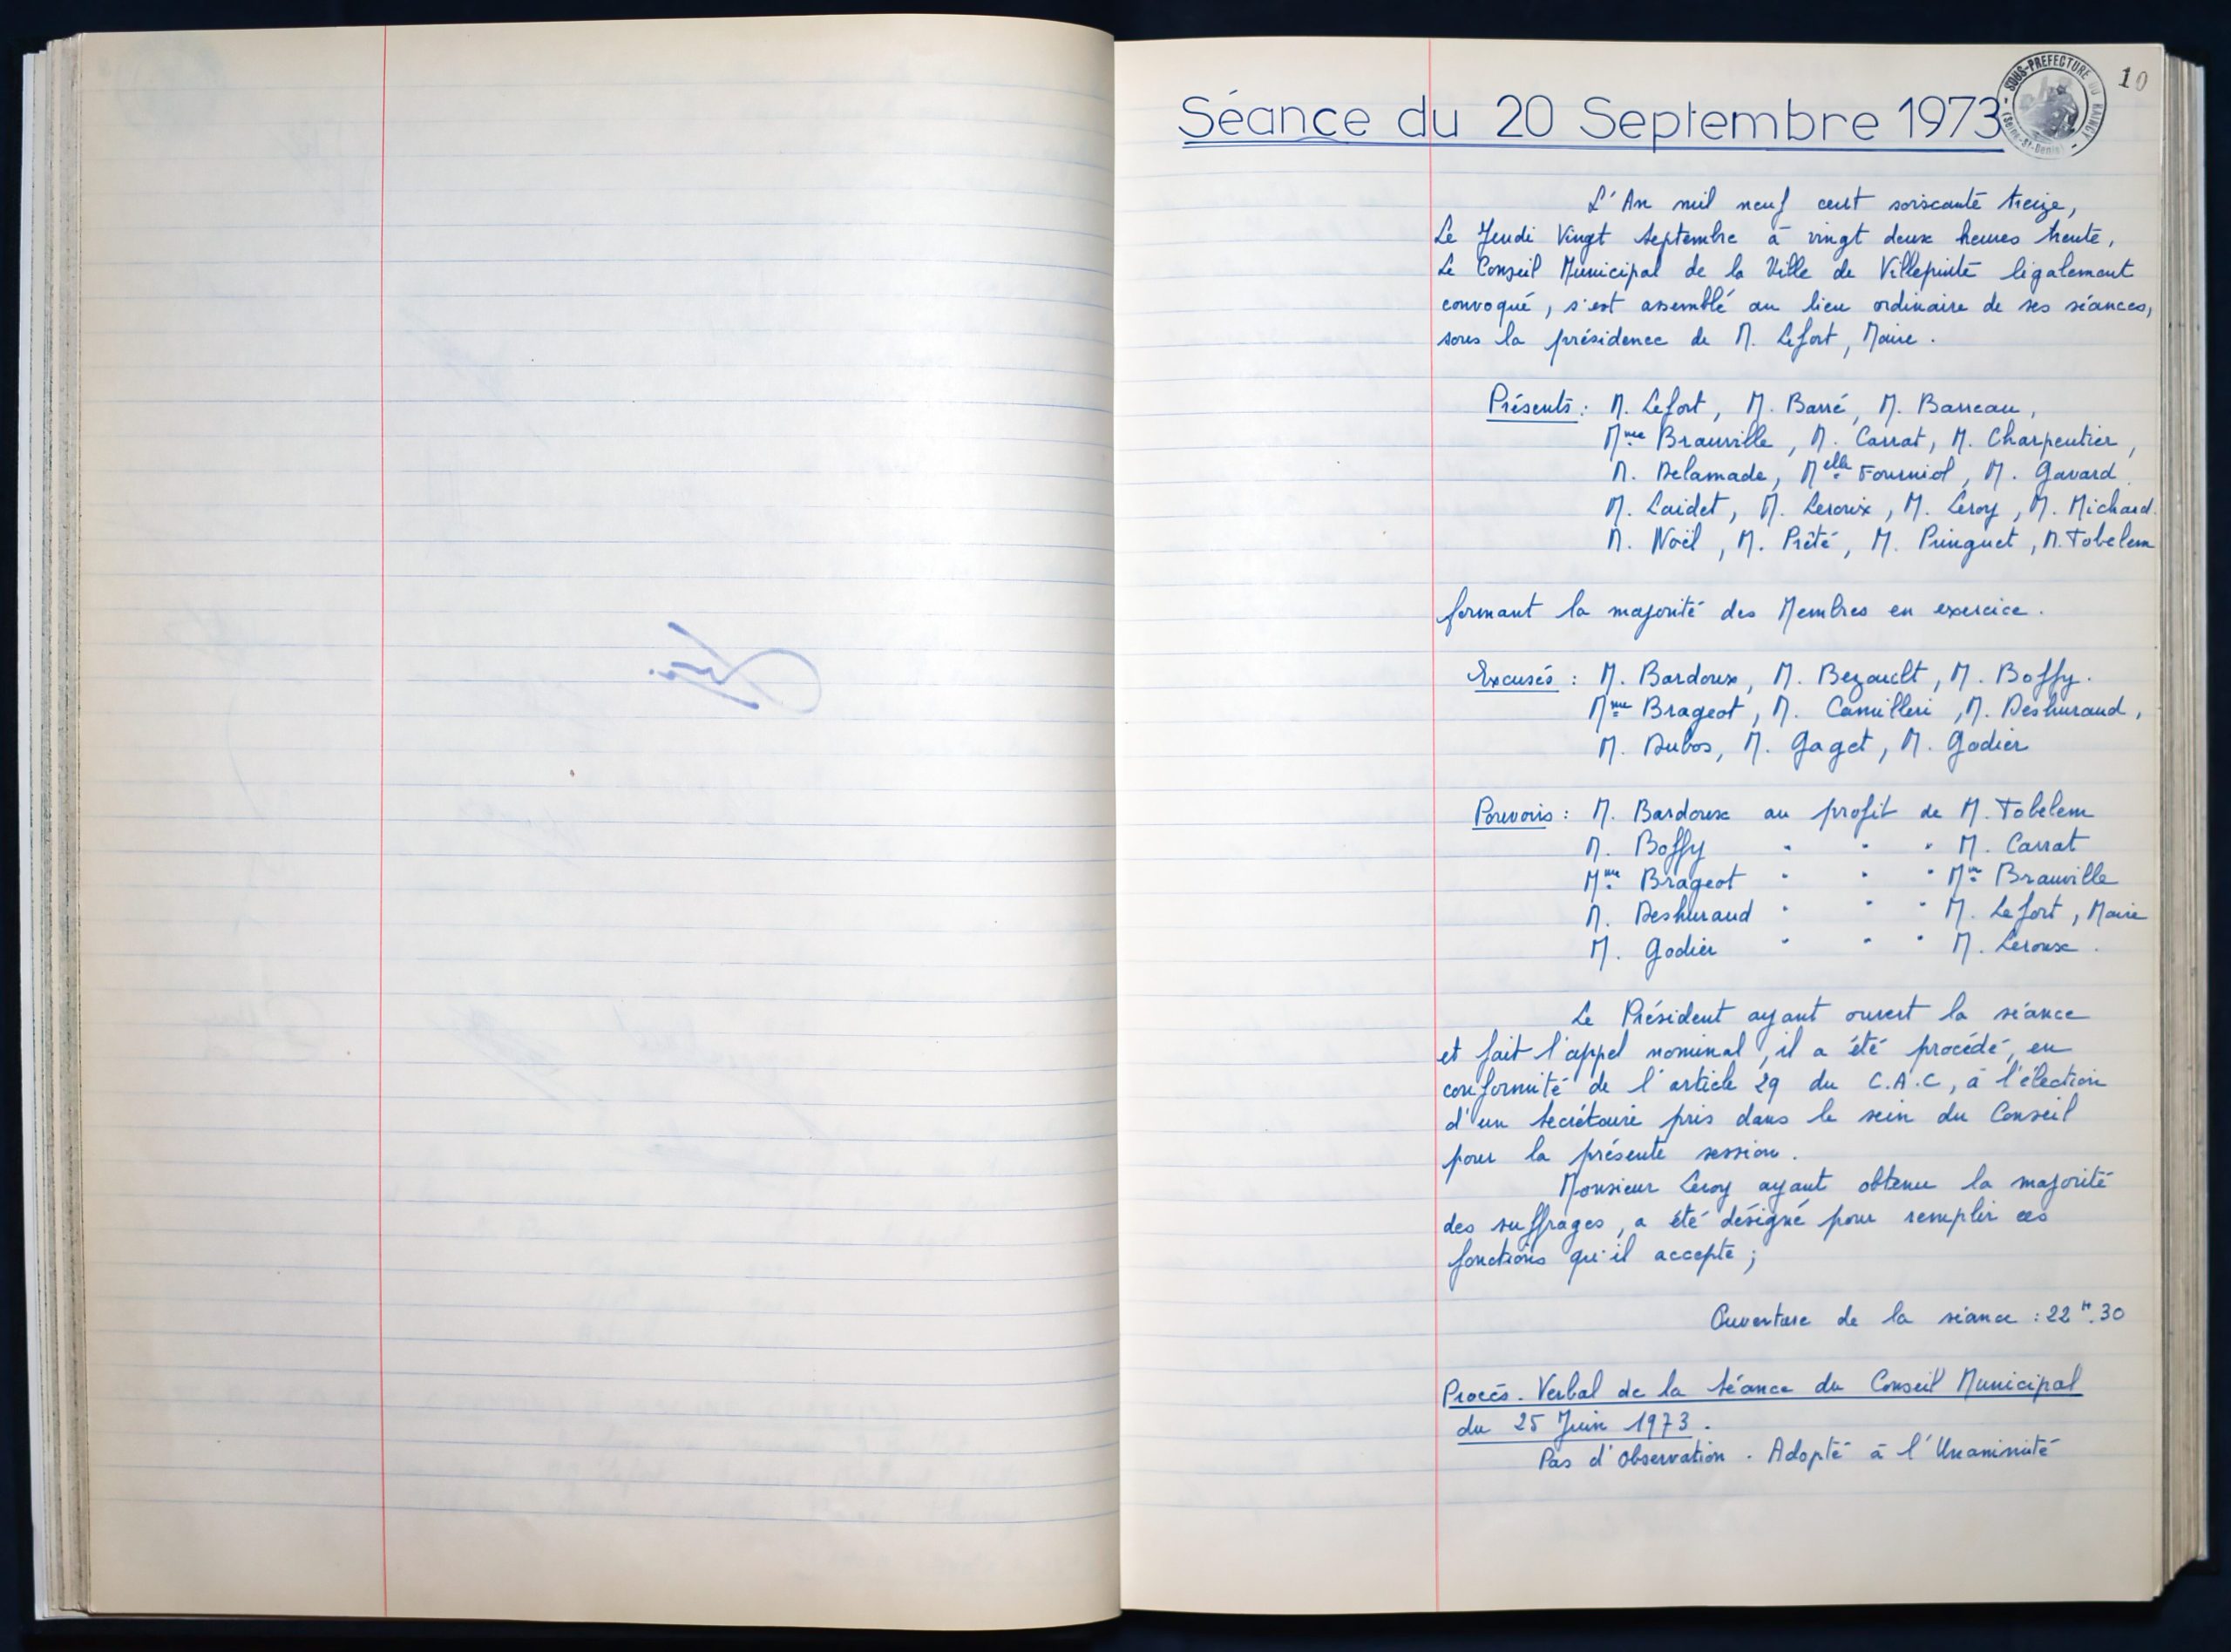 10
SOUS-PREFECTURE DU RAINCY
(Seine-St-Denis)
Séance du 20 Septembre 1973
L'An mil neuf cent soixante treize,
Le Jeudi Vingt Septembre à vingt deux heures trente,
Le Conseil Municipal de la Ville de Villepinte légalement
convoqué, s'est assemblé au lieu ordinaire de ses séances,
sous la présidence de M. Lefort, Maire.
Présents : M. Lefort, M. Barré, M. Barreau,
Mme Brauville, M. Carrat, M. Charpentier,
M. Delamade, Melle Fourniol, M. Gavard
M. Laidet, M. Leroux, M. Leroy, M. Michard.
M. Noël, M. Prêté, M. Puinguet, M. Tobelem
formant la majorité des Membres en exercice.
Excusés : M. Bardoux, M. Bezault, M. Boffy.
Mme Brageot, M. Camilleri, M. Deshuraud,
M. Dubos, M. Gaget, M. Godier
Pouvoirs : M. Bardoux au profit de M. Tobelem
M. Boffy " " " M. Carrat
Mme Brageot " " " Mme Brauville
M. Deshuraud " " " M. Lefort, Maire
M. Godier " " " M. Leroux.
Le Président ayant ouvert la séance
et fait l'appel nominal, il a été procédé, en
conformité de l'article 29 du C.A.C, à l'élection
d'un Secrétaire pris dans le sein du Conseil
pour la présente session.
Monsieur Leroy ayant obtenu la majorité
des suffrages, a été désigné pour remplir ces
fonctions qu'il accepte ;
Ouverture de la séance : 22 H. 30
Procès-Verbal de la Séance du Conseil Municipal
du 25 Juin 1973.
Pas d'Observation. Adopté à l'Unanimité